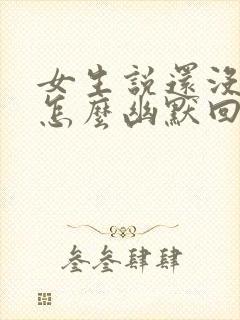 女生說還沒
怎麼幽默回
叁叁肆肆